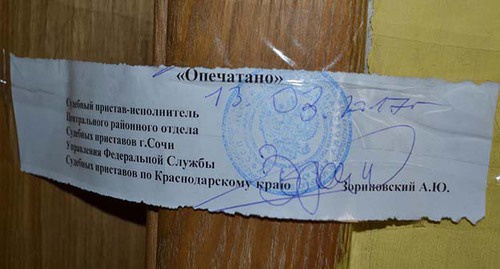 «Опечатано»
13. 03. 2017г
Судебный пристав-исполнитель
Центрального районного отдела
Судебных приставов г.Сочи
Управления Федеральной Службы
Судебных приставов по Краснодарскому краю Зориновский А.Ю.